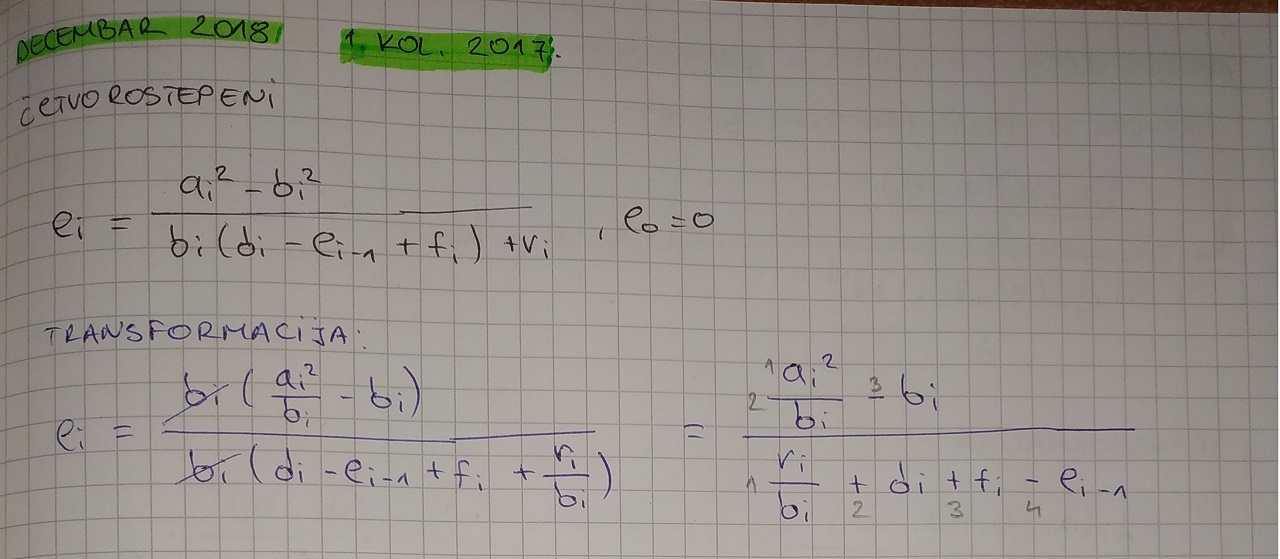 DECEMBAR 2018 1. KOL. 2017.
ČETVOROSTEPENI
e_i = (a_i² - b_i²) / (b_i(d_i - e_{i-1} + f_i) + r_i) , e_0 = 0
TRANSFORMACIJA:
e_i = b_i(a_i²/b_i - b_i) / b_i(d_i - e_{i-1} + f_i + r_i/b_i) = (1 a_i² 2 / b_i 3 - b_i) / (1 r_i/b_i + 2 d_i + 3 f_i - 4 e_{i-1})